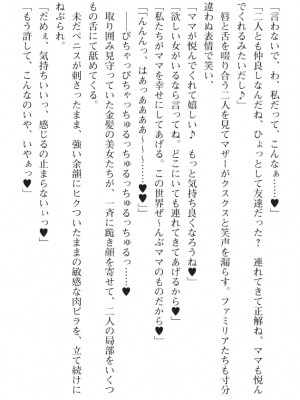 「言わないで、わ、私だって、こんなぁ……♥」
「二人とも仲良しなんだね、ひょっとして友達だった？　連れてきて正解ね、ママも悦ん
でくれるみたいだし♪」
唇と舌を啜り合う二人を見てマザーがクスクスと笑声を漏らす。ファミリアたちも寸分
違わぬ表情で笑い、
「ママが悦んでくれて嬉しい♪　もっと気持ち良くなろうね♥
欲しい女がいるなら言ってね。どこにいても連れてきてあげるから♥
「私たちがママを幸せにしてあげる。この世界ぜ～んぶママのものだから♥」
「んんんっ、はぁっああああ～～～……♥♥」
――びちゃっびちゃっちゅるっちゅるっちゅるっ……♥
取り囲み見守っていた金髪の美女たちが、一斉に跪き顔を寄せて、二人の局部をいくつ
もの舌にて舐めてくる。
未だペニスが刺さったまま、強い余韻にヒクついたままの敏感な肉ビラを、立て続けに
ねぶられ、
「だめぇ、気持ちいいっ、感じるの止まらないぃっ♥」
「もう許して、こんなのいや、いやぁっ♥」